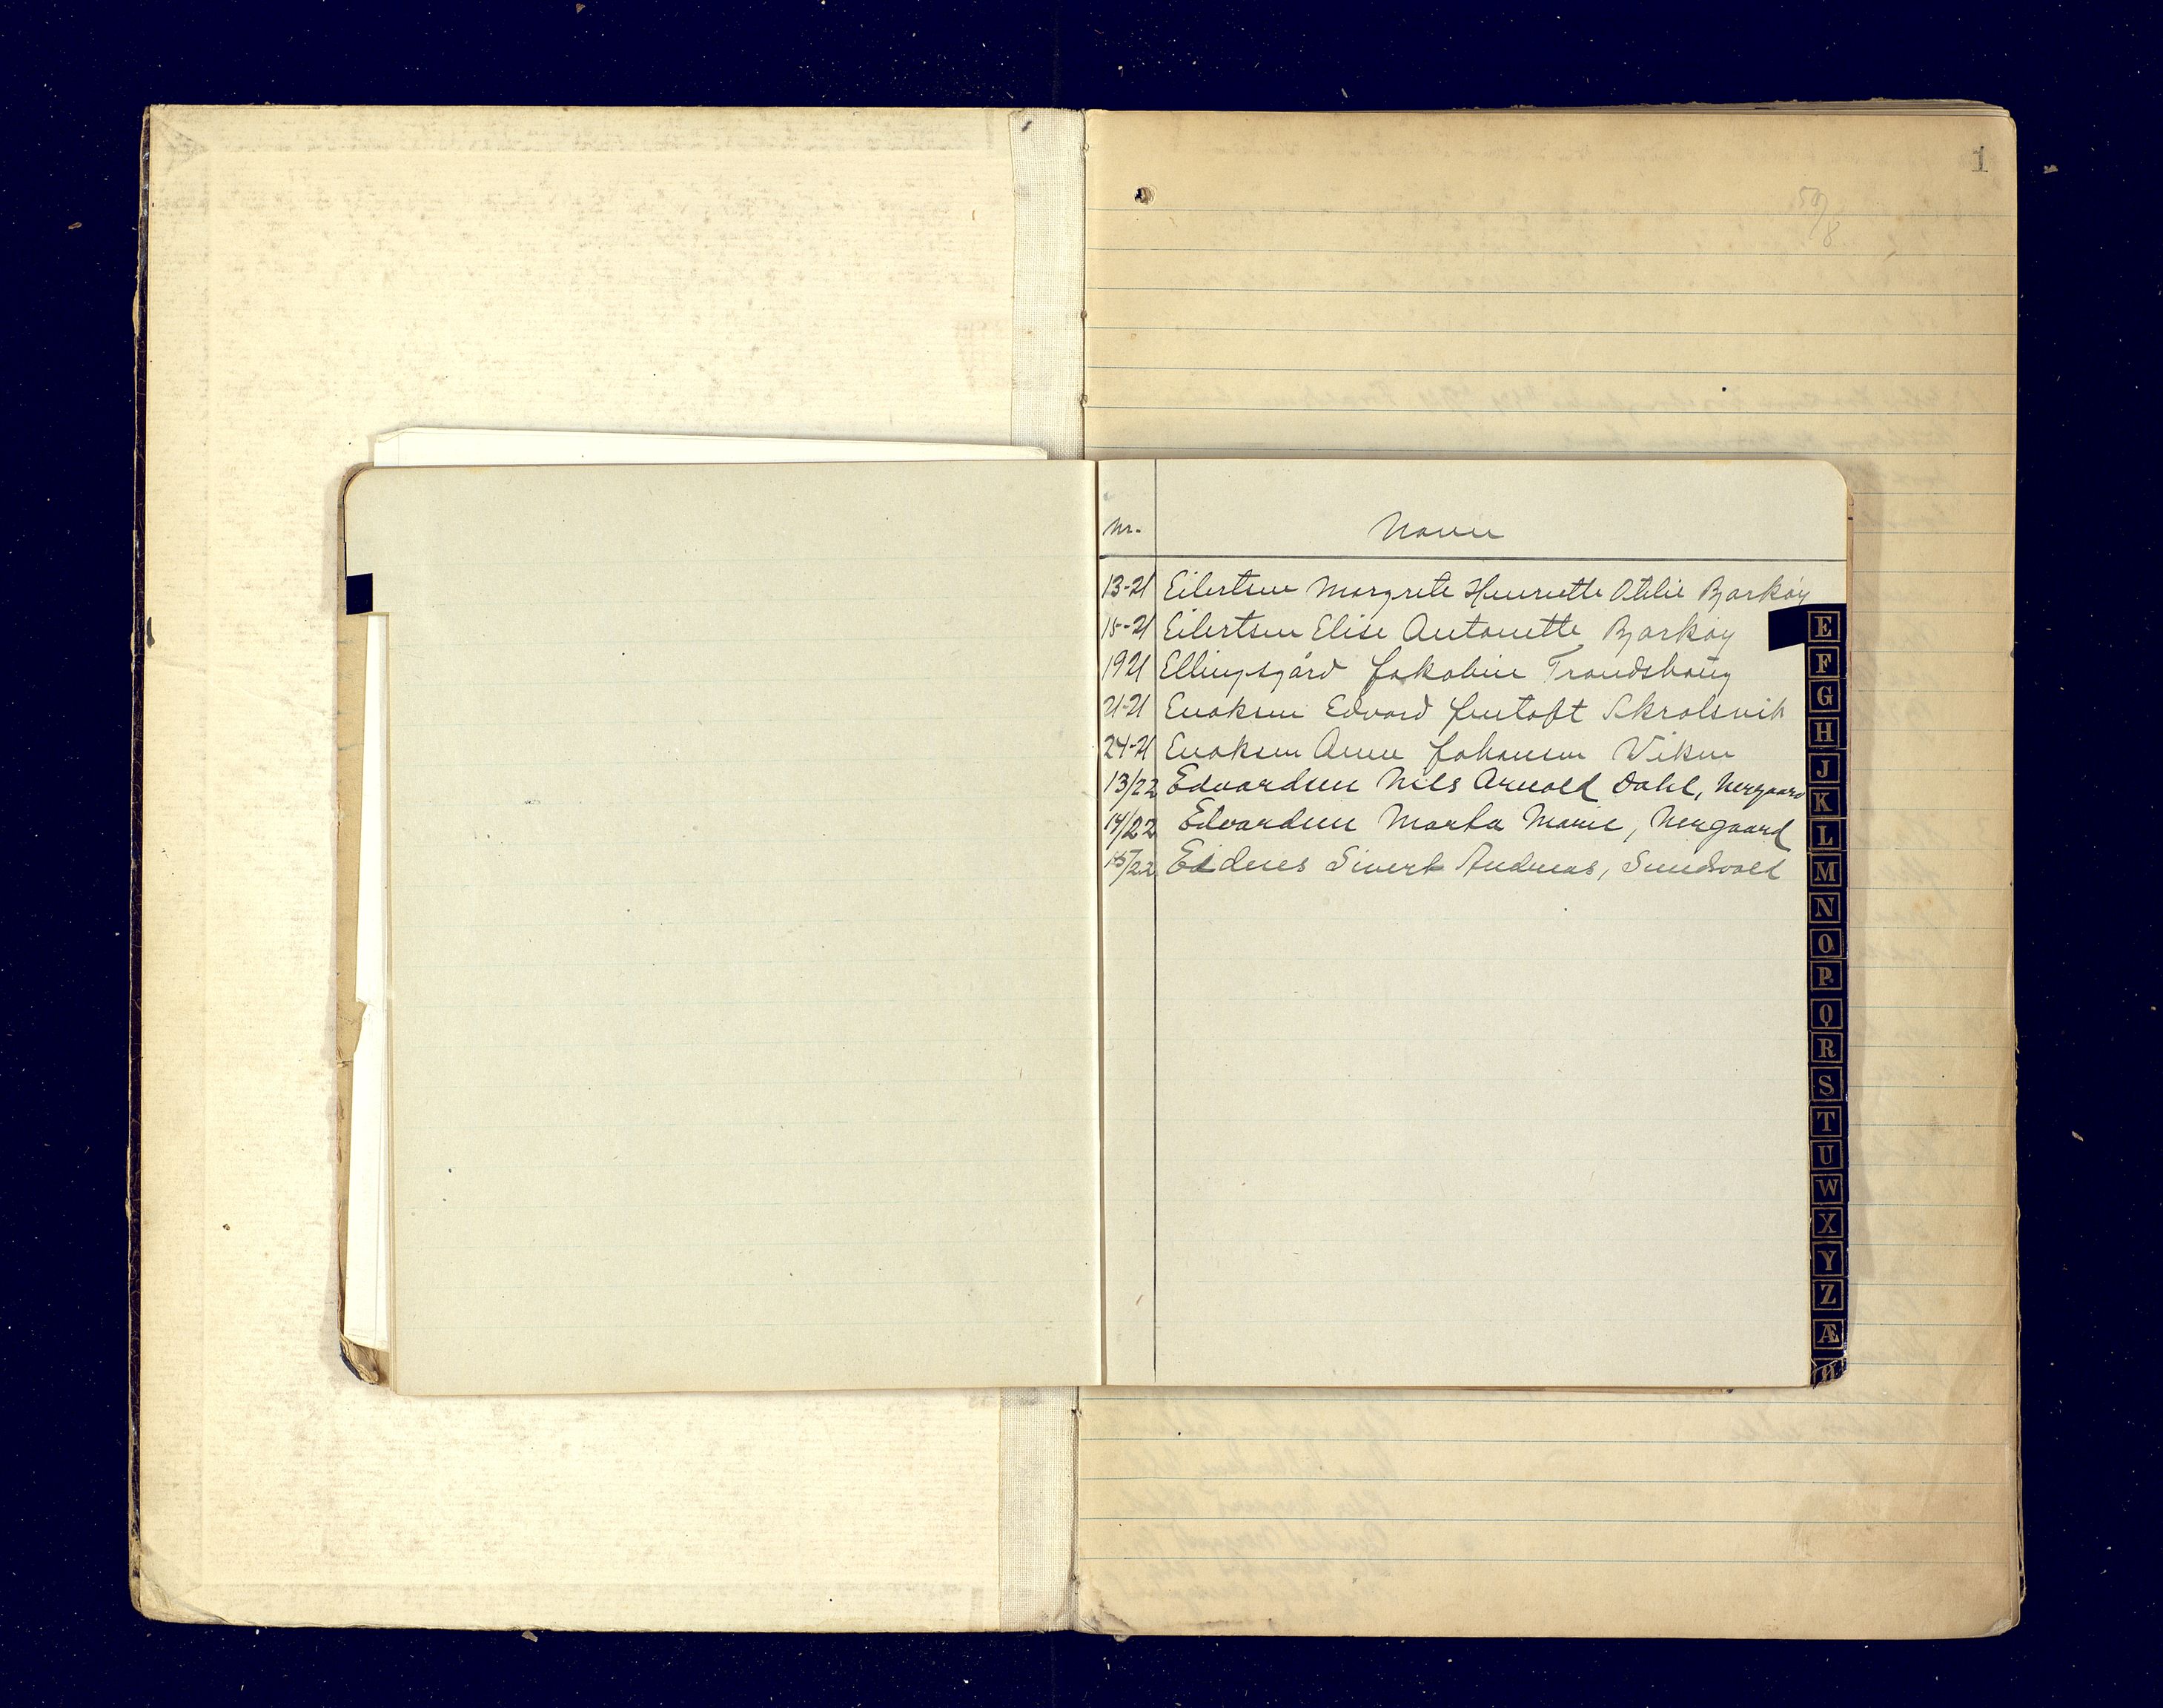 1
50/8
Nr. Navn
13-21 Eilertsen Margrete Henriette Otelie Bjarkøy
15-21 Eilertsen Elise Antonette Bjarkøy
19 21 Ellingsgård Jakobine Trondshaug
21-21 Enoksen Edvard Jentoft Skrolsvik
24-21 Enoksen Anne Johansen Viken
13/22 Edvardsen Nils Arnold Dahl, Nergaard
14/22 Edvardsen Marta Marie, Nergaard
15/22 Eidnes Sivert Andreas, Sundsvoll
E
F
G
H
J
K
L
M
N
O
P
Q
R
S
T
U
W
X
Y
Z
Æ
Ø